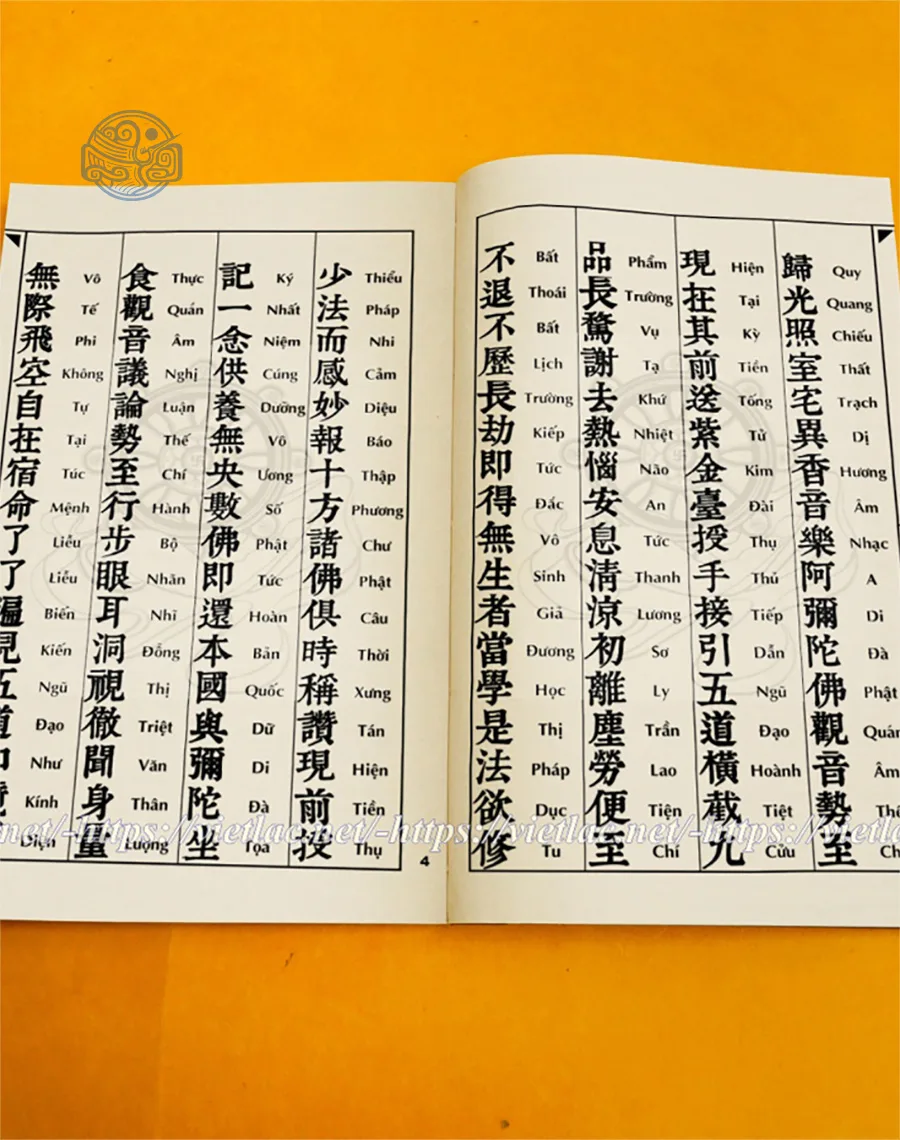 歸光照室宅異香音樂阿彌陀佛觀音勢至
Quy Quang Chiếu Thất Trạch Dị Hương Âm Nhạc A Di Đà Phật Quán Âm
現在其前送紫金臺授手接引五道橫截九
Hiện Tại Kỳ Tiền Tống Tử Kim Đài Thụ Thủ Tiếp Dẫn Ngũ Đạo Hoành Tiệt Cửu
品長騖謝去熱惱安息清涼初離塵勞便至
Phẩm Trường Vụ Tạ Khứ Nhiệt Não An Tức Thanh Lương Sơ Ly Trần Lao Tiện Chí
不退不歷長劫即得無生者當學是法欲修
Bất Thoái Bất Lịch Trường Kiếp Tức Đắc Vô Sinh Giả Đương Học Thị Pháp Dục Tu
少法而感妙報十方諸佛俱時稱讚現前授
Thiểu Pháp Nhi Cảm Diệu Báo Thập Phương Chư Phật Câu Thời Xưng Tán Hiện Tiền Thụ
記一念供養無央數佛即還本國與彌陀坐
Ký Nhất Niệm Cúng Dưỡng Vô Ương Số Phật Tức Hoàn Bản Quốc Dữ Di Đà Tọa
食觀音議論勢至行步眼耳洞視徹聞身量
Thực Quán Âm Nghị Luận Thế Chí Hành Bộ Nhãn Nhĩ Đổng Thị Triệt Văn Thân Lượng
無際飛空自在宿命了了遍見五道
Vô Tế Phi Không Tự Tại Túc Mệnh Liễu Liễu Biến Kiến Ngũ Đạo Như Kính Diện
4
net/-https://vietlac.net/-https://vietlac.net/-https://vietlac